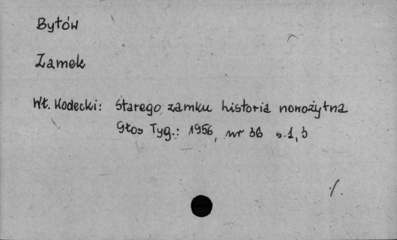 Bytów
Zamek
Wł. Kodecki: Starego zamku historia nowożytna
Głos Tyg.: 1956, nr 36 s.1,3
./.